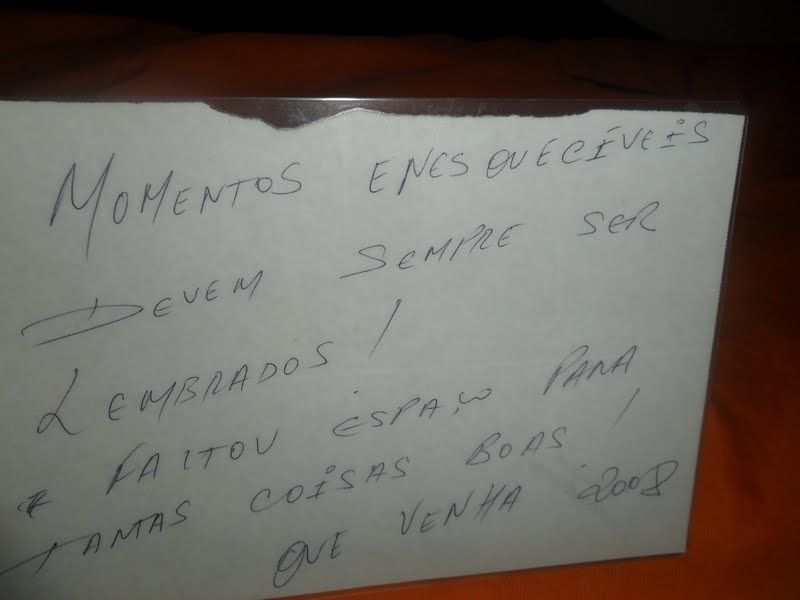 MOMENTOS ENESQUECÍVEIS
DEVEM SEMPRE SER
LEMBRADOS!
E FALTOU ESPAÇO PARA
TANTAS COISAS BOAS!
QUE VENHA 2008